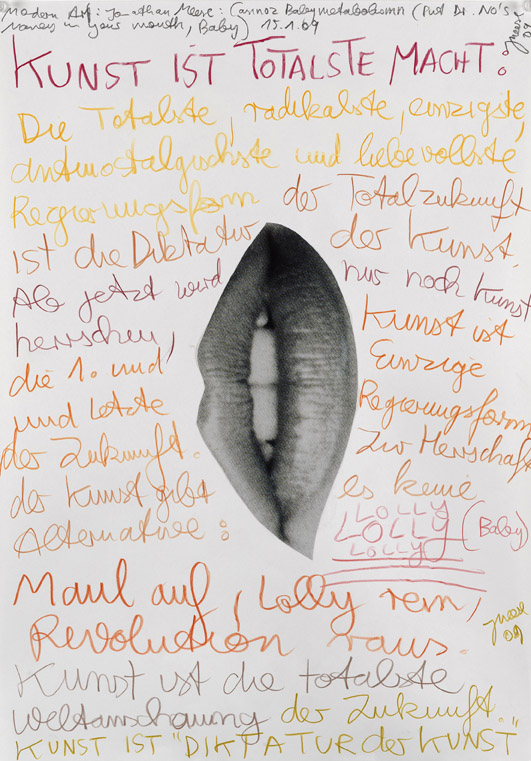 Modern Art: Jonathan Meese: Cannoz Babymetabolismn (Put Dr. No's
Money in your mouth, Baby) 15.1.09
JMeese 09
KUNST IST TOTALSTE MACHT:
Die Totalste, radikalste, einzigste,
antinostalgischste und liebevollste
Regierungsform der Totalzukunft
ist die Diktatur der Kunst.
Ab jetzt wird nur noch Kunst
herrschen, Kunst ist
die 1. und Einzige
und letzte Regierungsform
der Zukunft. Zur Herrschaft
der Kunst gibt es keine
Alternative:
LOLLY
LOLLY (Baby)
LOLLY
Maul auf, Lolly rein,
Revolution raus.
JMeese 09
Kunst ist die totalste
Weltanschauung der Zukunft..
KUNST IST "DIKTATUR der KUNST"